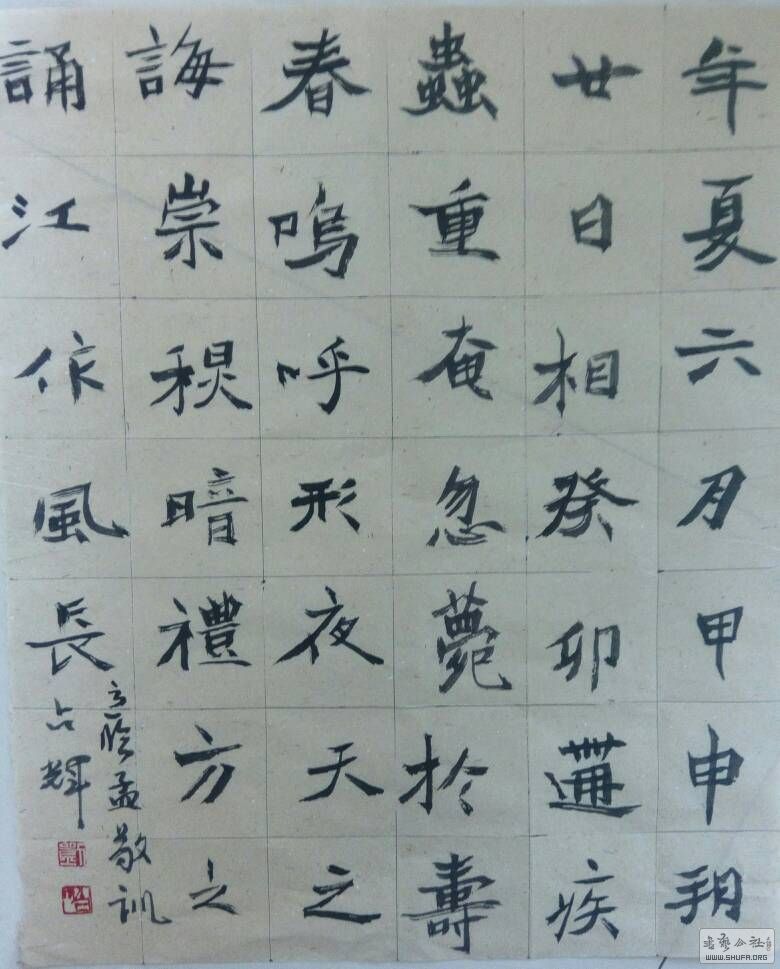 年夏六月甲申朔
廿日相癸卯遘疾
蟲重奄忽薨於壽
春嗚呼形夜天之
誨崇暗禮方之
誦江作風長
臨孟敬訓
占輝
書藝公社
WWW.SHUFA.ORG